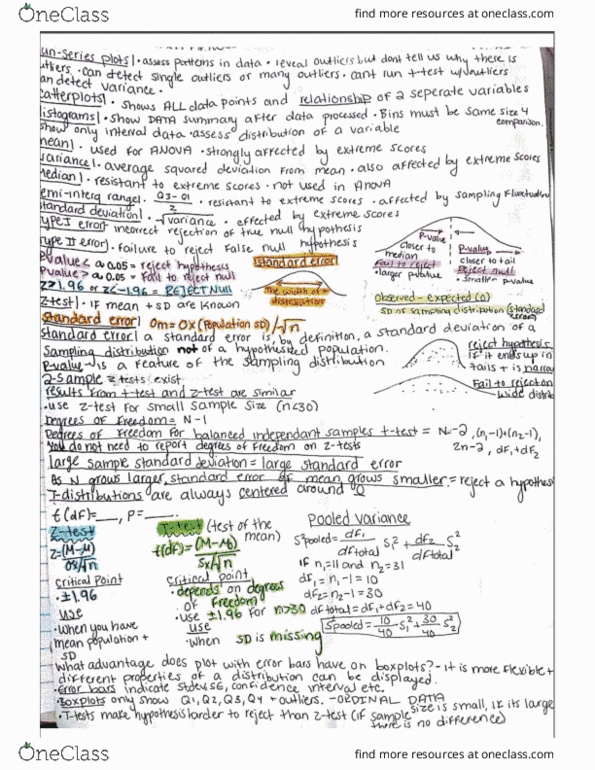 OneClass
find more resources at oneclass.com
un-series plots | • assess patterns in data • reveal outliers but dont tell us why there is
utliers • can detect single outliers or many outliers • cant run t-test w/outliers
an detect variance •
catterplots | • shows ALL data points and relationship of 2 seperate variables
listograms | • show DATA summary after data processed • Bins must be same size 4 comparison.
show only interval data • assess distribution of a variable
mean | • used for ANOVA • strongly affected by extreme scores
variance | • average squared deviation from mean • also affected by extreme scores
median | • resistant to extreme scores • not used in Anova
emi-interq range | • Q3-Q1/2 • resistant to extreme scores • affected by sampling
standard deviation | • √variance • effected by extreme scores
type I error | incorrect rejection of true null hypothesis
type II error | • failure to reject false null hypothesis
Pvalue < α 0.05 = reject hypothesis
Pvalue > α 0.05 = fail to reject null
z ≥ 1.96 or z < -1.96 = REJECT NULL
z-test | • if mean + SD are known
standard error
The width of a distribution
P-value
closer to median
Fail to reject
• larger pvalue
P-value
closer to tail
Reject null
• smaller p-value
observed - expected (0)
SD of sampling distribution (standard error)
standard error | σm = σx (population SD) / √n
standard error | a standard error is, by definition, a standard deviation of a
sampling distribution not of a hypothesized population.
P-value - is a feature of the sampling distribution
2-sample z tests exist
results from t-test and z-test are similar
• use z-test for small sample size (n<30)
reject hypothesis
if it ends up in
tails + is narrow
Fail to reject on
wide distrib
Degrees of Freedom = N-1
Degrees of Freedom for balanced independant samples t-test = N-2, (n₁-1)+(n₂-1),
2n-2, df₁+df₂
You do not need to report degrees of freedom on z-tests
large sample standard deviation = large standard error
As N grows larger, standard error of mean grows smaller = reject a hypothes
T-distributions are always centered around 0
t(df)=___, P=___.
z-test
z = (M-μ) / σx/√n
critical point
• ±1.96
use
• when you have
mean population +
SD
T-test (test of the mean)
t(df) = (M-μ₀) / Sx/√n
critical point
• depends on degrees
of freedom
• use ±1.96 for n>30
use
• when SD is missing
Pooled variance
S²pooled = df₁/dftotal S₁² + df₂/dftotal S₂²
if n₁=11 and n₂=31
df₁ = n₁-1 = 10
df₂ = n₂-1 = 30
dftotal = df₁ + df₂ = 40
S²pooled = 10/40 S₁² + 30/40 S₂²
What advantage does plot with error bars have on boxplots? - it is more flexible +
different properties of a distribution can be displayed.
• Error bars indicate stdev, SE, confidence interval etc.
• Boxplots only show Q1, Q2, Q3, Q4 + outliers. - ORDINAL DATA
• T-tests make hypothesis harder to reject than z-test (if sample size is small, if its large there is no difference)
OneClass
find more resources at oneclass.com